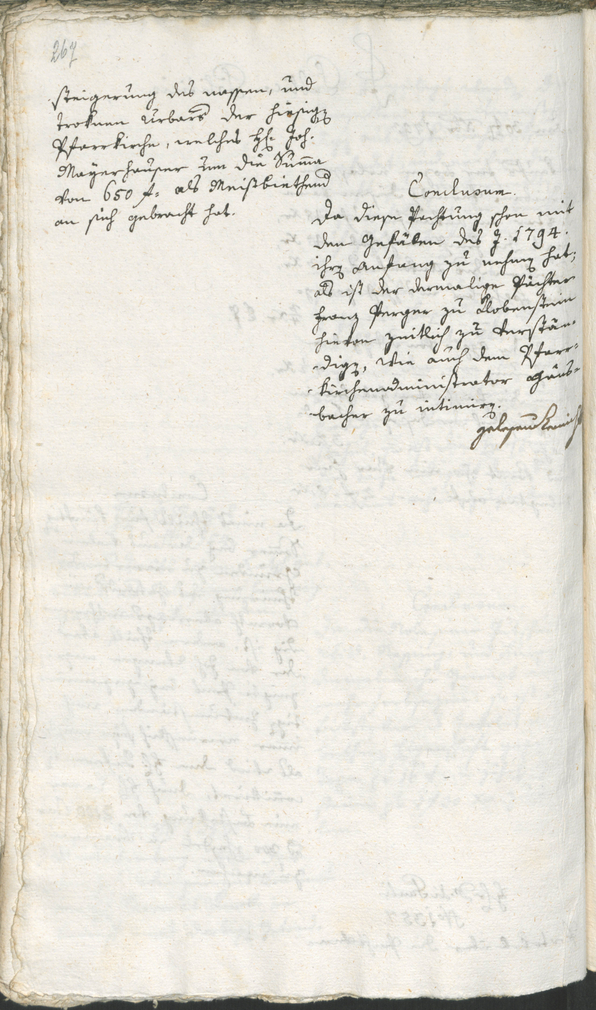 267
steigerung des nassen, und
troknen Urbars der hiesigen
Pfarrkirche, welches H. Joh.
Mayerhauser um die Summa
von 650 f. als Meistbiethend
an sich gebracht hat.
Conclusum.
Da diese Pachtung schon mit
den Gefälen des J. 1794.
ihren Anfang zu nehmen hat;
als ist der dermalige Pächter
Franz Perger zu Klobenstein
hievon zeitlich zu verstän-
digen, wie auch dem Pfarr-
kirchenadministrator Gäns-
bacher zu intimiren.